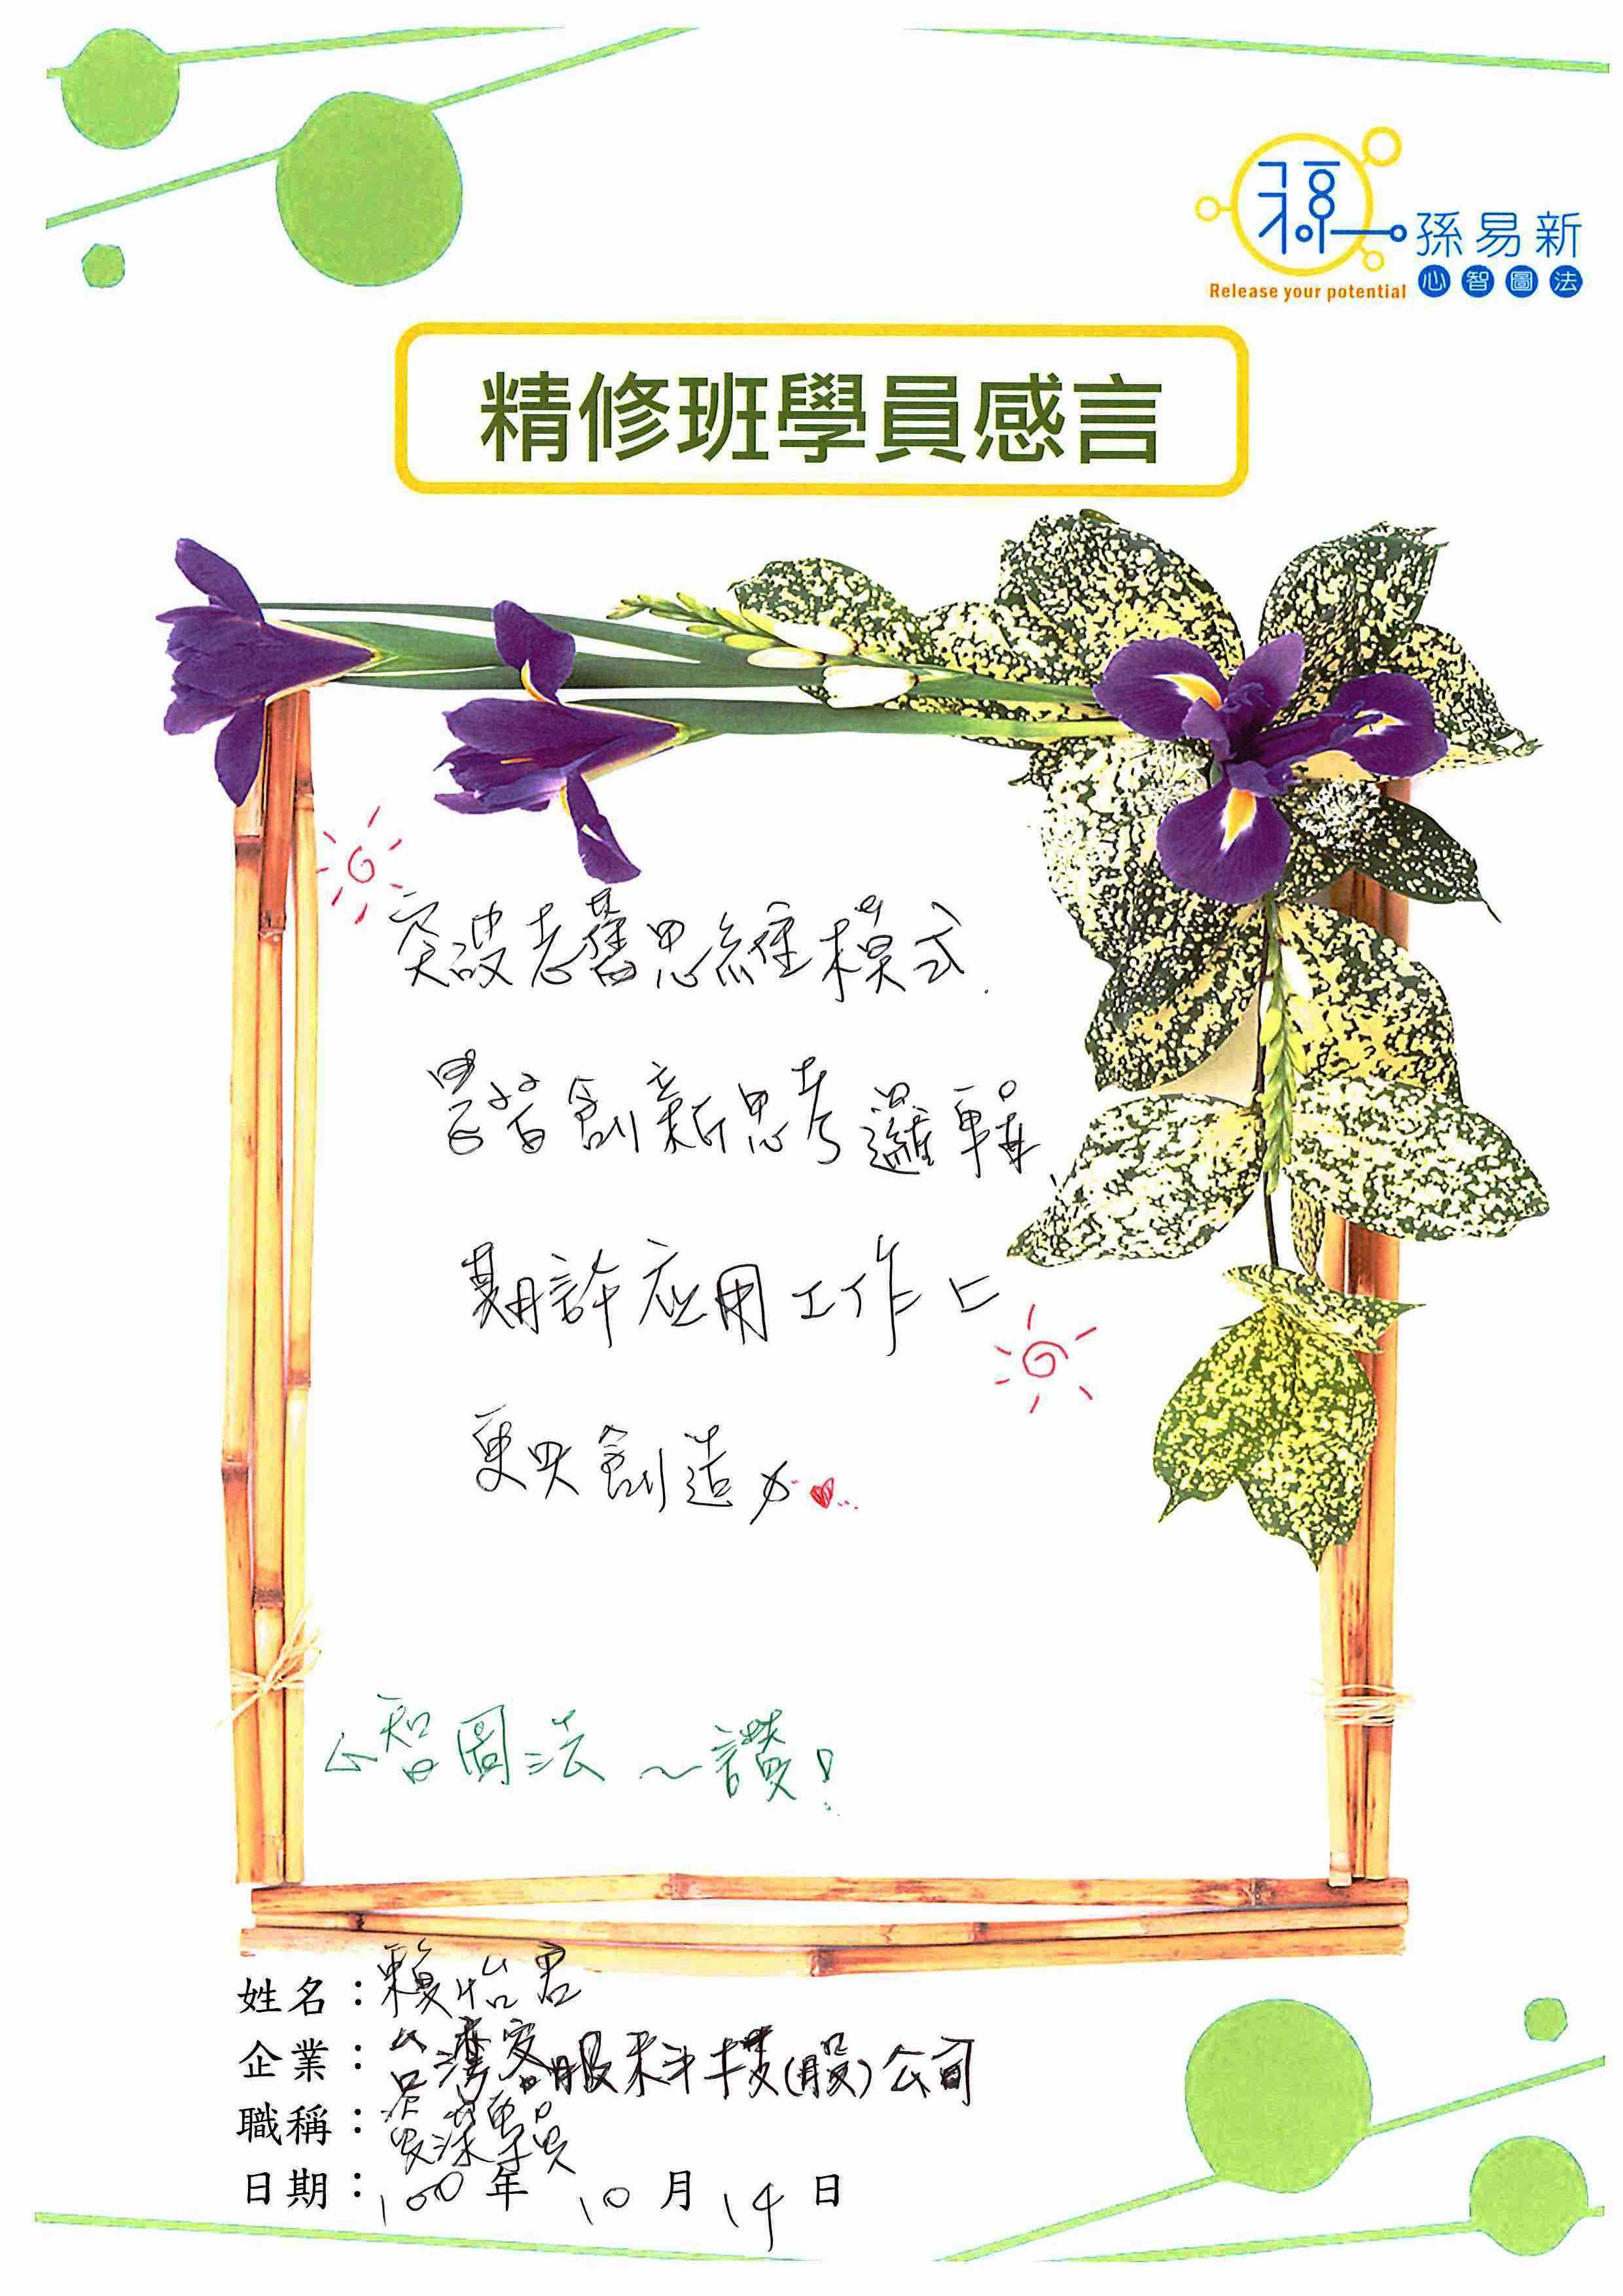 孫易新
Release your potential
心智圖法
精修班學員感言
突破老舊思維模式.
學習創新思考邏輯,
期許应用工作上
更具創造力
心智圖法～讚!
姓名：賴怡君
企業：台灣客服科技(股)公司
職稱：資深專員
日期：100年10月14日